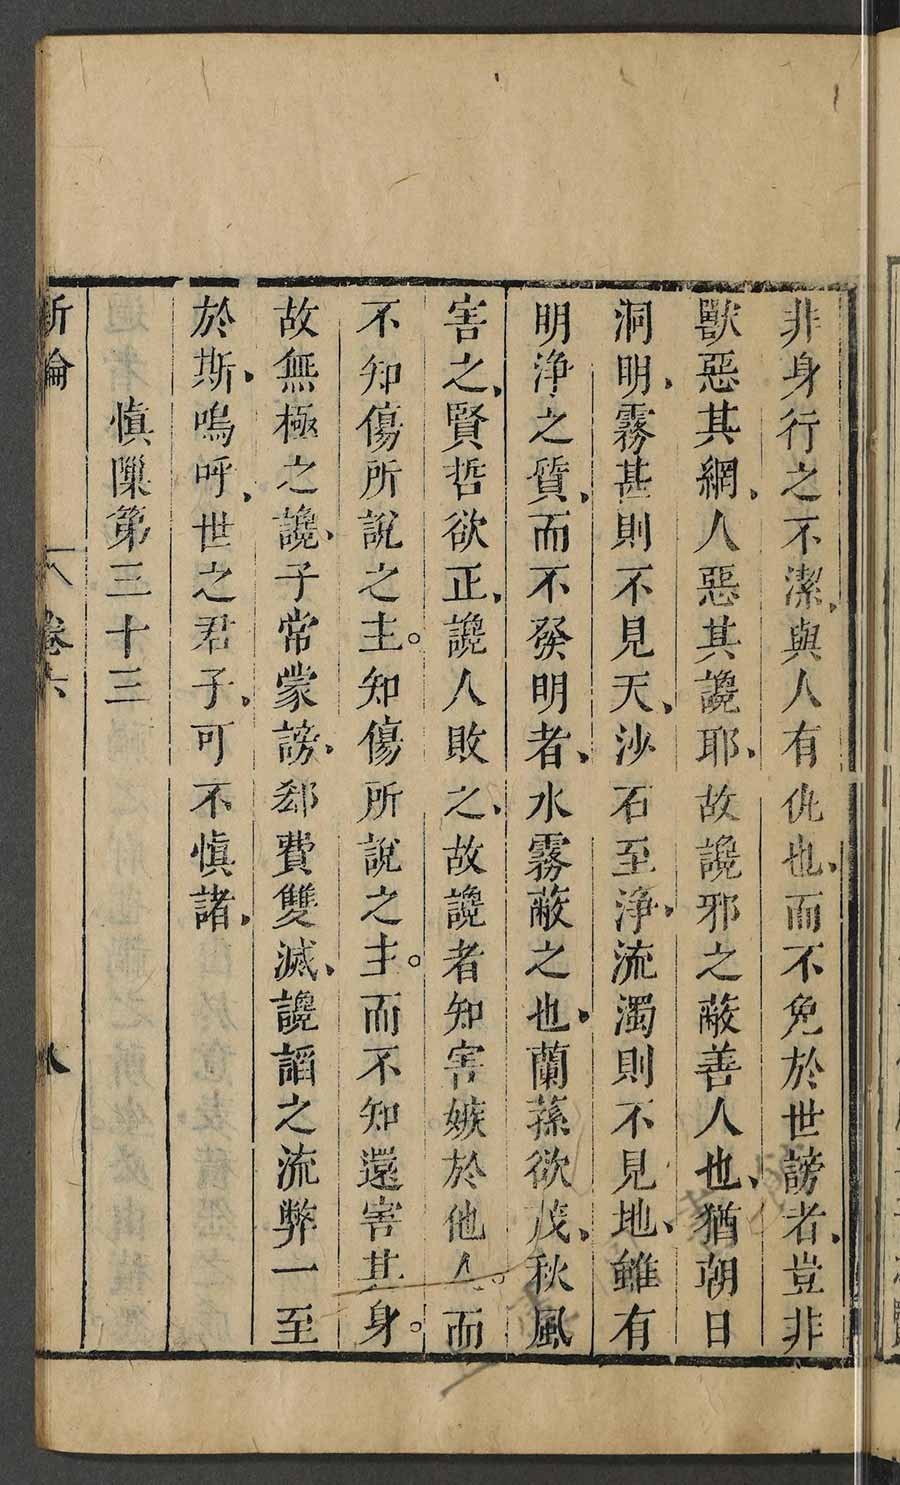 非身行之不潔、與人有仇也、而不免於世謗者、豈非
獸惡其網、人惡其讒耶、故讒邪之蔽善人也、猶朝日
洞明、霧甚則不見天、沙石至淨、流濁則不見地、雖有
明淨之質、而不發明者、水霧蔽之也、蘭蓀欲茂、秋風
害之、賢哲欲正、讒人敗之、故讒者知害嫉於他人。而
不知傷所說之主。知傷所說之主。而不知還害其身。
故無極之讒、子常蒙謗、郄費雙滅、讒諂之流弊一至
於斯、嗚呼、世之君子、可不慎諸、
慎隟第三十三
新論 卷六 八